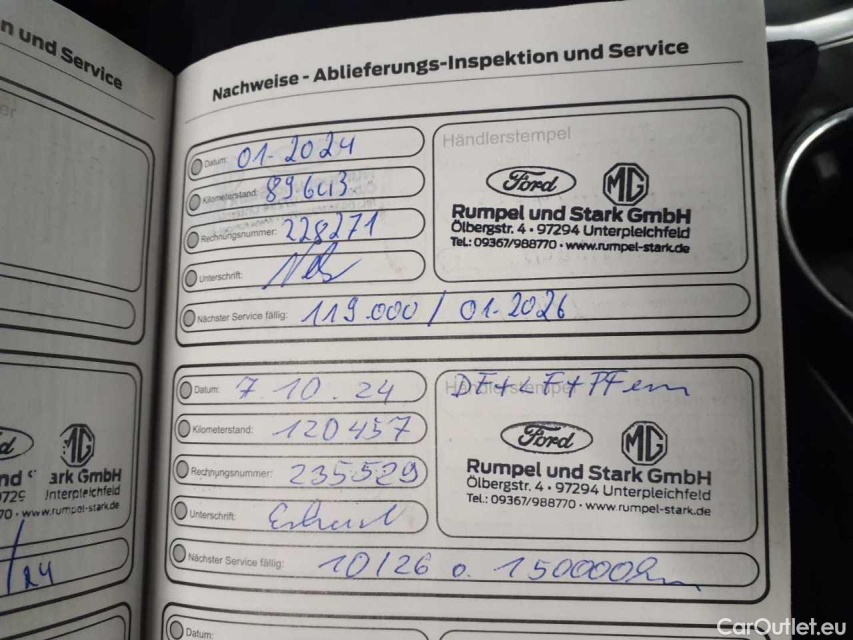 n und Service
Nachweise - Ablieferungs-Inspektion und Service
Datum: 01-2024
Kilometerstand:
Rechnungsnummer: 228271
Unterschrift:
Nächster Service fällig: 119.000 / 01-2026
Händlerstempel
Ford MG
Rumpel und Stark GmbH
Ölbergstr. 4 • 97294 Unterpleichfeld
Tel.: 09367/988770 • www.rumpel-stark.de
Datum: 7.10.24
Kilometerstand: 120457
Rechnungsnummer: 235529
Unterschrift:
Nächster Service fällig: 10/26 o. 150000km
Händlerstempel
DF+LF+PF em
Ford MG
Rumpel und Stark GmbH
Ölbergstr. 4 • 97294 Unterpleichfeld
Tel.: 09367/988770 • www.rumpel-stark.de
MG
ark GmbH
Unterpleichfeld
70 • www.rumpel-stark.de
/24
Datum:
CarOutlet.eu